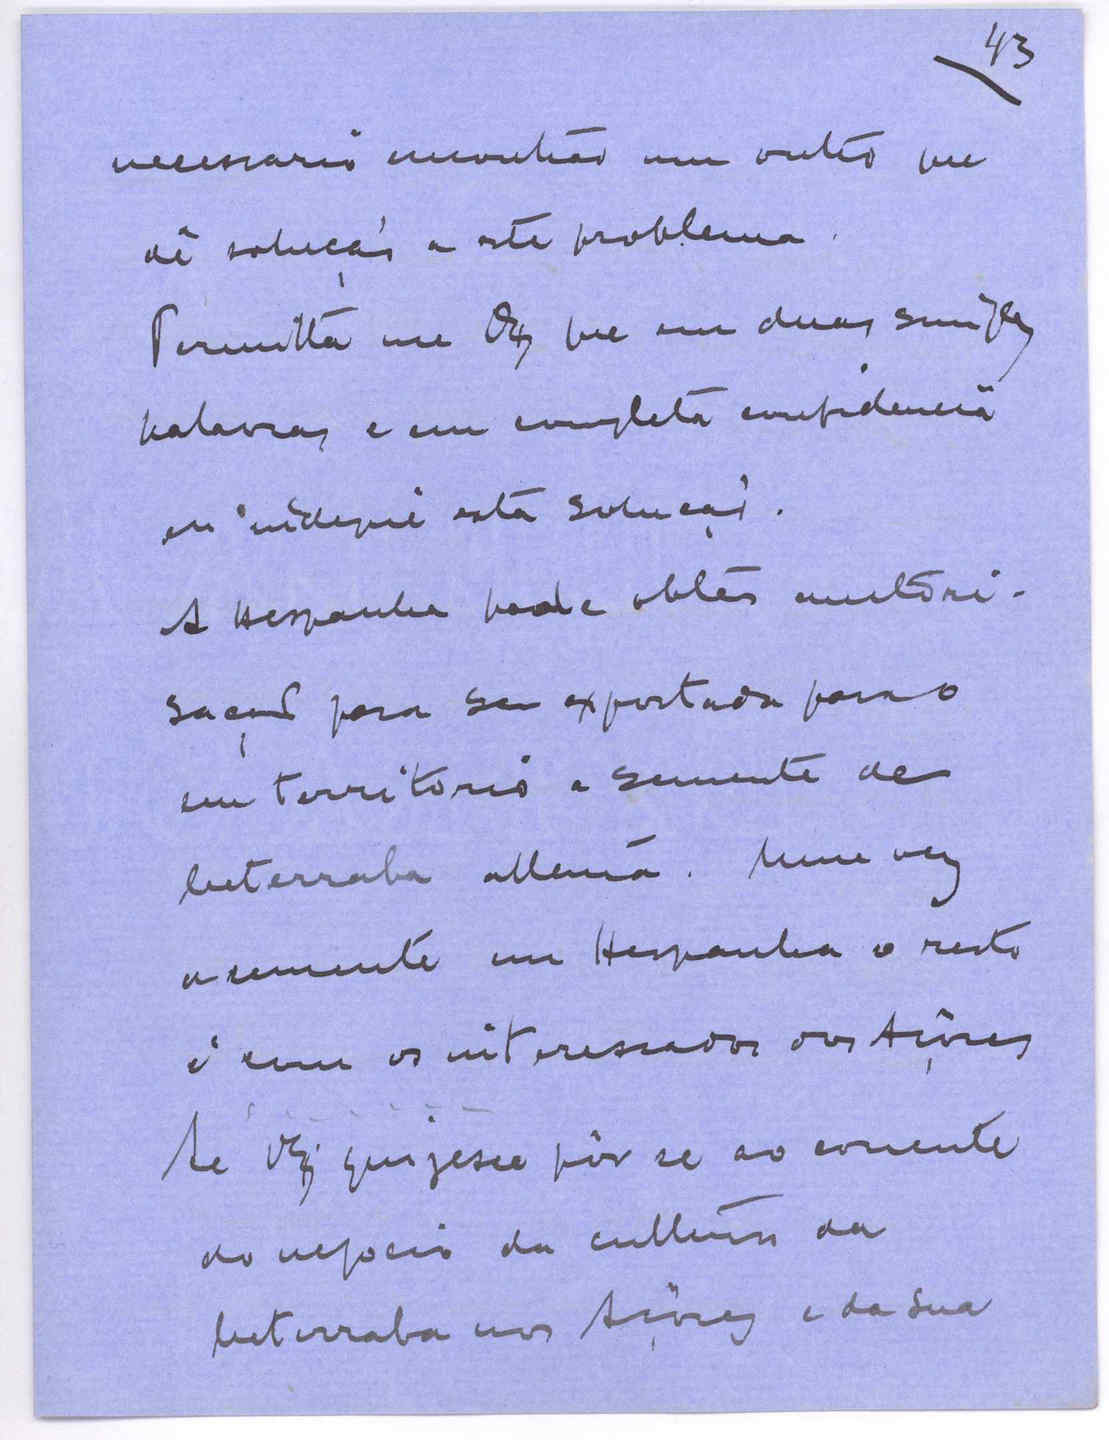 43
necessario encontrar um outro que
dê solução a este problema.
Permitta me VEx que em duas simples
palavras e em completa confidencia
eu indique esta solução.
A Hespanha pode obter autori-
sação para ser exportada para o
seu territorio a semente de
beterraba allemã. Uma vez
a semente em Hespanha o resto
é com os interessados dos Açores
Se VEx quizesse pôr se ao corrente
do negocio da cultura da
beterraba nos Açores e da sua